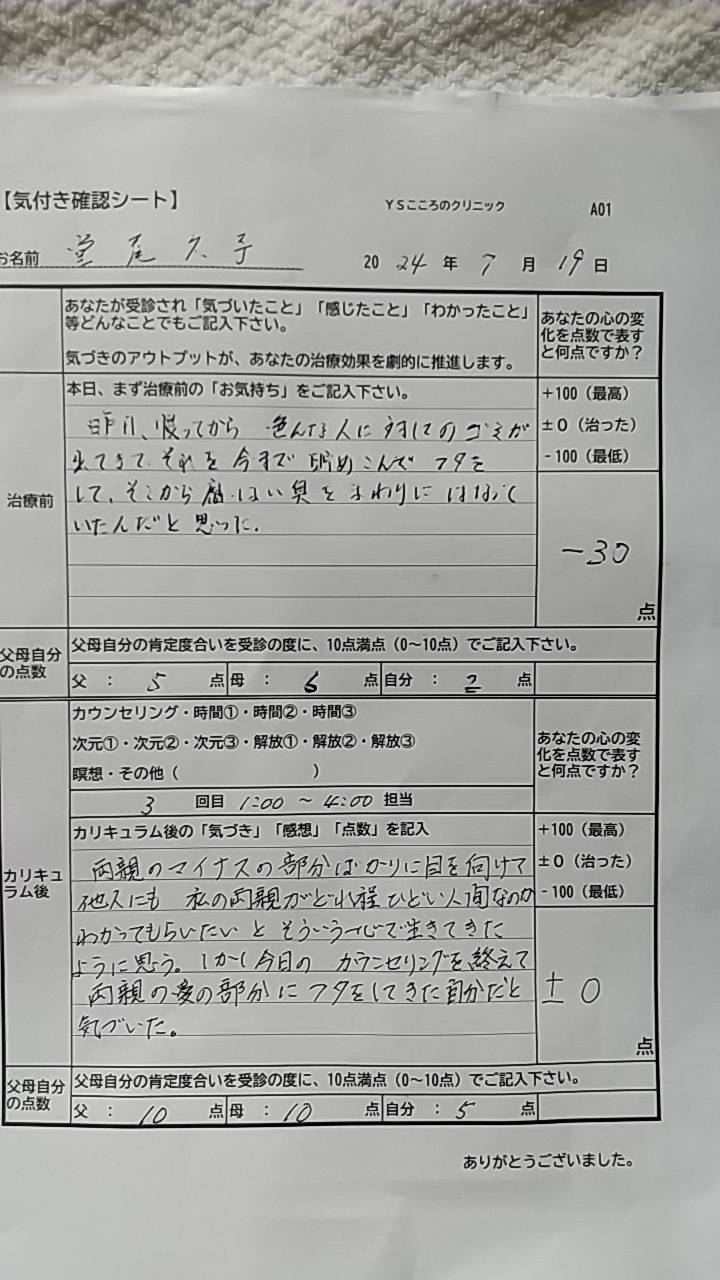 【気付き確認シート】
YSこころのクリニック
A01
お名前 堂尾久子
2024年7月19日
あなたが受診され「気づいたこと」「感じたこと」「わかったこと」
等どんなことでもご記入下さい。
気づきのアウトプットが、あなたの治療効果を劇的に推進します。
あなたの心の変
化を点数で表す
と何点ですか？
治療前
本日、まず治療前の「お気持ち」をご記入下さい。
昨日、帰ってから 色んな人に対してのゴミが
出てきて、それを今まで貯めこんで フタを
して、そこから腐ったい臭をまわりにはなって
いたんだと思った。
+100（最高）
±0（治った）
-100（最低）
-30
点
父母自分
の点数
父母自分の肯定度合いを受診の度に、10点満点（0～10点）でご記入下さい。
父 ： 5 点 母 ： 6 点 自分 ： 2 点
カウンセリング・時間①・時間②・時間③
次元①・次元②・次元③・解放①・解放②・解放③
瞑想・その他（ ）
3 回目 1:00 ～ 4:00 担当
あなたの心の変
化を点数で表す
と何点ですか？
カリキュ
ラム後
カリキュラム後の「気づき」「感想」「点数」を記入
両親のマイナスの部分ばかりに目を向けて
他人にも 私の両親がどれ程ひどい人間なのか
わかってもらいたい と そういう一心で生きてきた
ように思う。しかし今日の カウンセリングを終えて
両親の愛の部分にフタをしてきた自分だと
気づいた。
+100（最高）
±0（治った）
-100（最低）
±0
点
父母自分
の点数
父母自分の肯定度合いを受診の度に、10点満点（0～10点）でご記入下さい。
父 ： 10 点 母 ： 10 点 自分 ： 5 点
ありがとうございました。